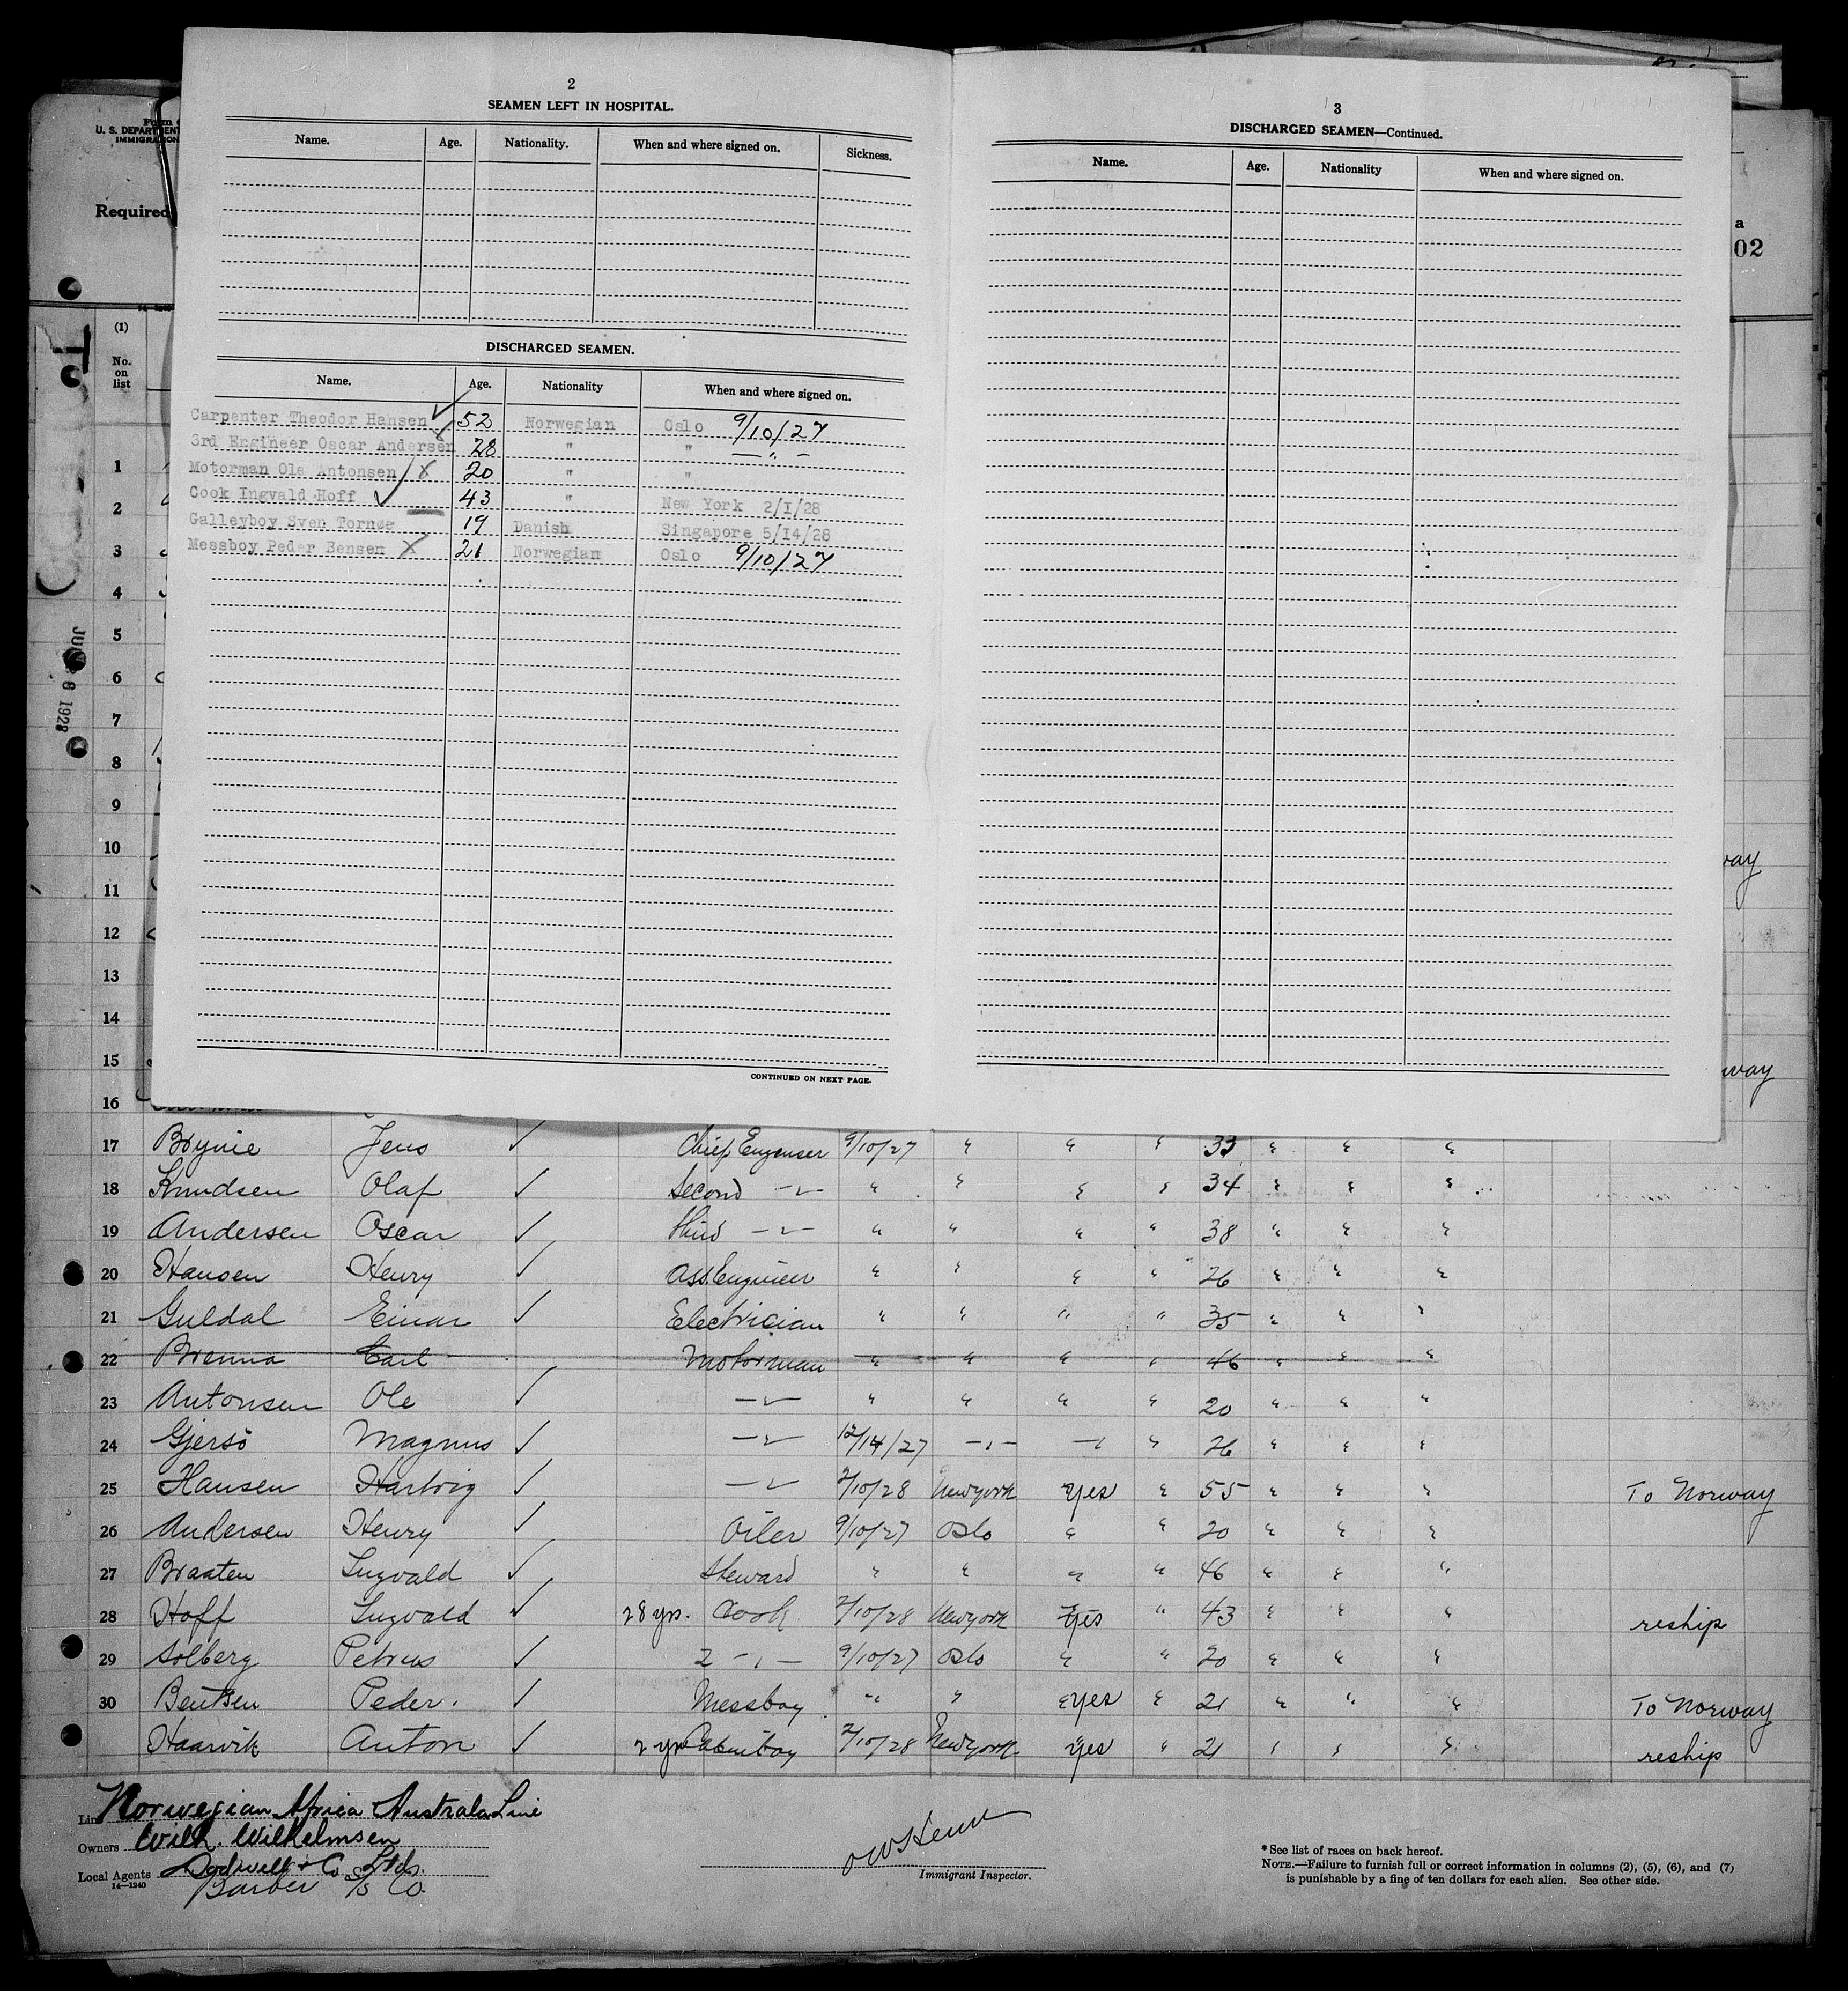 2
SEAMEN LEFT IN HOSPITAL.
Name. Age. Nationality. When and where signed on. Sickness.
DISCHARGED SEAMEN.
Name. Age. Nationality When and where signed on.
Carpenter Theodor Hansen 52 Norwegian Oslo 9/10/27
3rd Engineer Oscar Andersen 28 " "
Motorman Ole Antonsen 20 " "
Cook Ingvald Hoff 43 " New York 2/1/28
Galleyboy Sven Tornøe 19 Danish Singapore 5/14/28
Messboy Peder Bensen 21 Norwegian Oslo 9/10/27
CONTINUED ON NEXT PAGE.
3
DISCHARGED SEAMEN—Continued.
Name. Age. Nationality When and where signed on.
U. S. DEPARTMENT
IMMIGRATION
Required
a
02
(1)
No.
on
list
1
2
3
4
5
6
7
8
9
10 way
11
12
13
14
15 way
16
17 Brynie Jens ✓ Chief Engenser 9/10/27 " " " 33 " " "
18 Knudsen Olaf ✓ Second -"- " " " " 34 " " "
19 Andersen Oscar ✓ third -"- " " " " 38 " " "
20 Hansen Henry ✓ Ass. Engineer " " " " 26 " " "
21 Guldal Einar ✓ Electrician " " " " 35 " " "
22 Brenna Carl Motorman " " " " 46 " " "
23 Antonsen Ole ✓ -"- " " " " 20 " " "
24 Gjersö Magnus ✓ -"- 12/14/27 -"- -" " 26 " " "
25 Hansen Hartvig ✓ -"- 2/10/28 Newyork Yes " 55 " " " To Norway
26 Andersen Henry ✓ Oiler 9/10/27 Oslo " " 20 " " "
27 Braaten Ingvald ✓ Steward " " " " 46 " " "
28 Hoff Ingvald ✓ 28 yrs. Cook 2/10/28 Newyork Yes " 43 " " " reship
29 Solberg Petrus ✓ 2 -"- 9/10/27 Oslo " " 20 " " "
30 Bentsen Peder. ✓ Messboy " " Yes " 21 " " " To Norway
Haarvik Anton ✓ 2 yrs Cabinboy 2/10/28 Newyork Yes " 21 " " " reship
Line Norwegian Africa Australa Line
Owners Wilh. Wilhelmsen
Local Agents Dodwell & Co Ltd.
14—1240 Barber S/S Co.
Immigrant Inspector.
*See list of races on back hereof.
NOTE.—Failure to furnish full or correct information in columns (2), (5), (6), and (7)
is punishable by a fine of ten dollars for each alien. See other side.